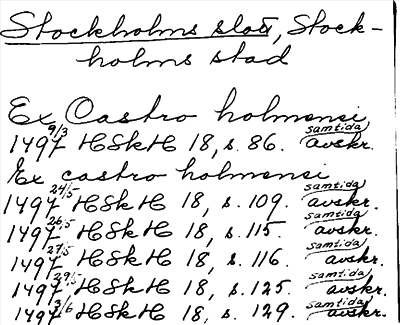 Stockholms slott, Stock-
holms stad
Ex Castro holmensi
1497 9/3 HSkH 18, s. 86. samtida avskr.
Ex castro holmensi
1497 24/5 HSkH 18, s. 109. samtida avskr.
1497 26/5 HSkH 18, s. 115. samtida avskr.
1497 27/5 HSkH 18, s. 116. samtida avskr.
1497 29/5 HSkH 18, s. 125. samtida avskr.
1497 3/6 HSkH 18, s. 129. samtida avskr.